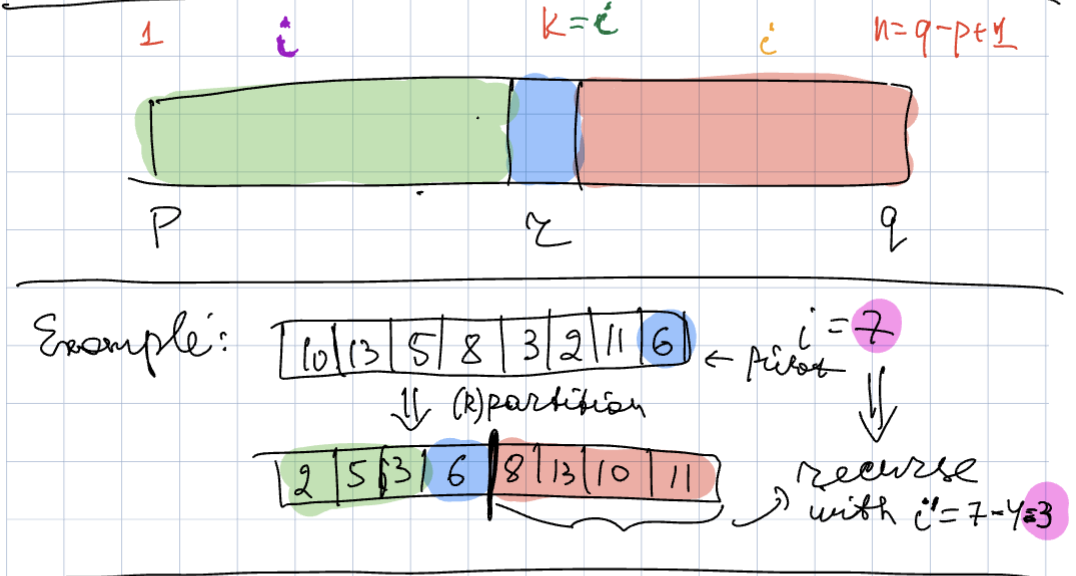 1 i k=i i n=q-p+1
p r q
Example: 10 13 5 8 3 2 11 6 ← pivot i=7
⇓ (R)partition ⇓
2 5 3 6 8 13 10 11 recurse
with i'=7-4=3